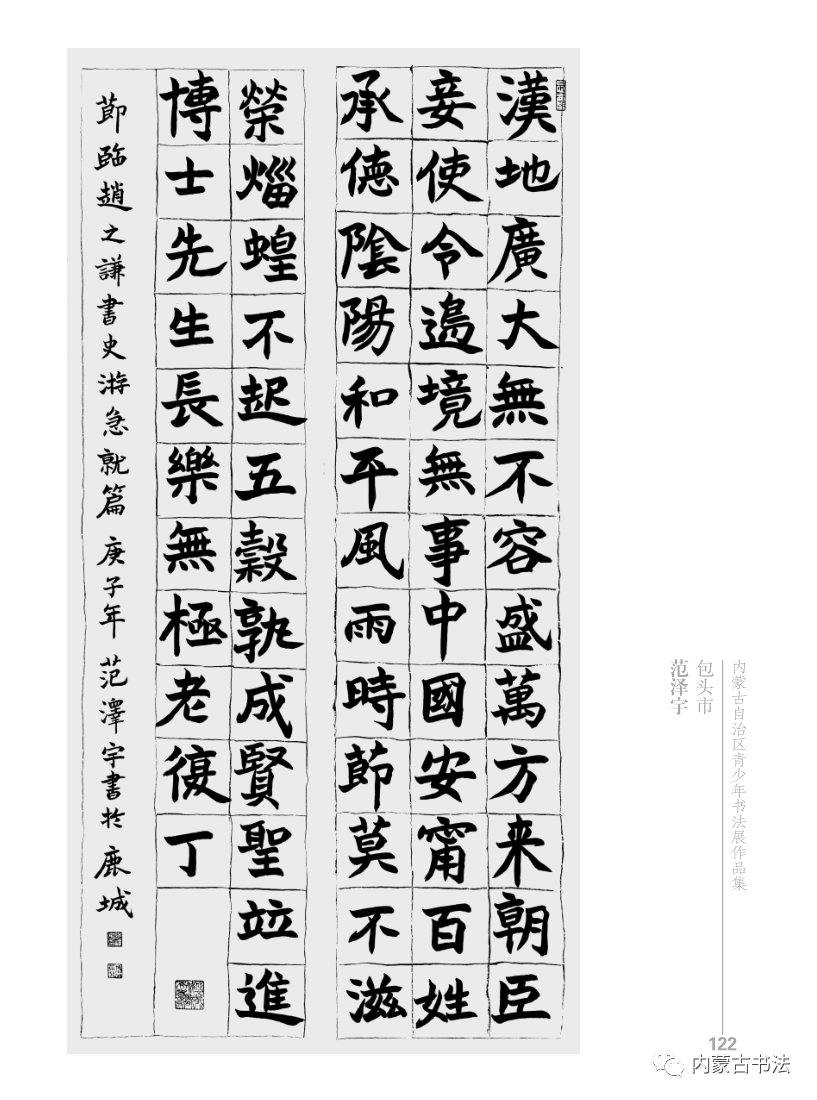 漢地廣大無不容盛萬方来朝臣
妾使令邉境無事中國安甯百姓
承德陰陽和平風雨時節莫不滋
榮烖蝗不起五穀孰成賢聖竝進
博士先生長樂無極老復丁
節臨趙之謙書史游急就篇 庚子年 范澤宇書於鹿城
内蒙古自治区青少年书法展作品集
包头市
范泽宇
122
内蒙古书法